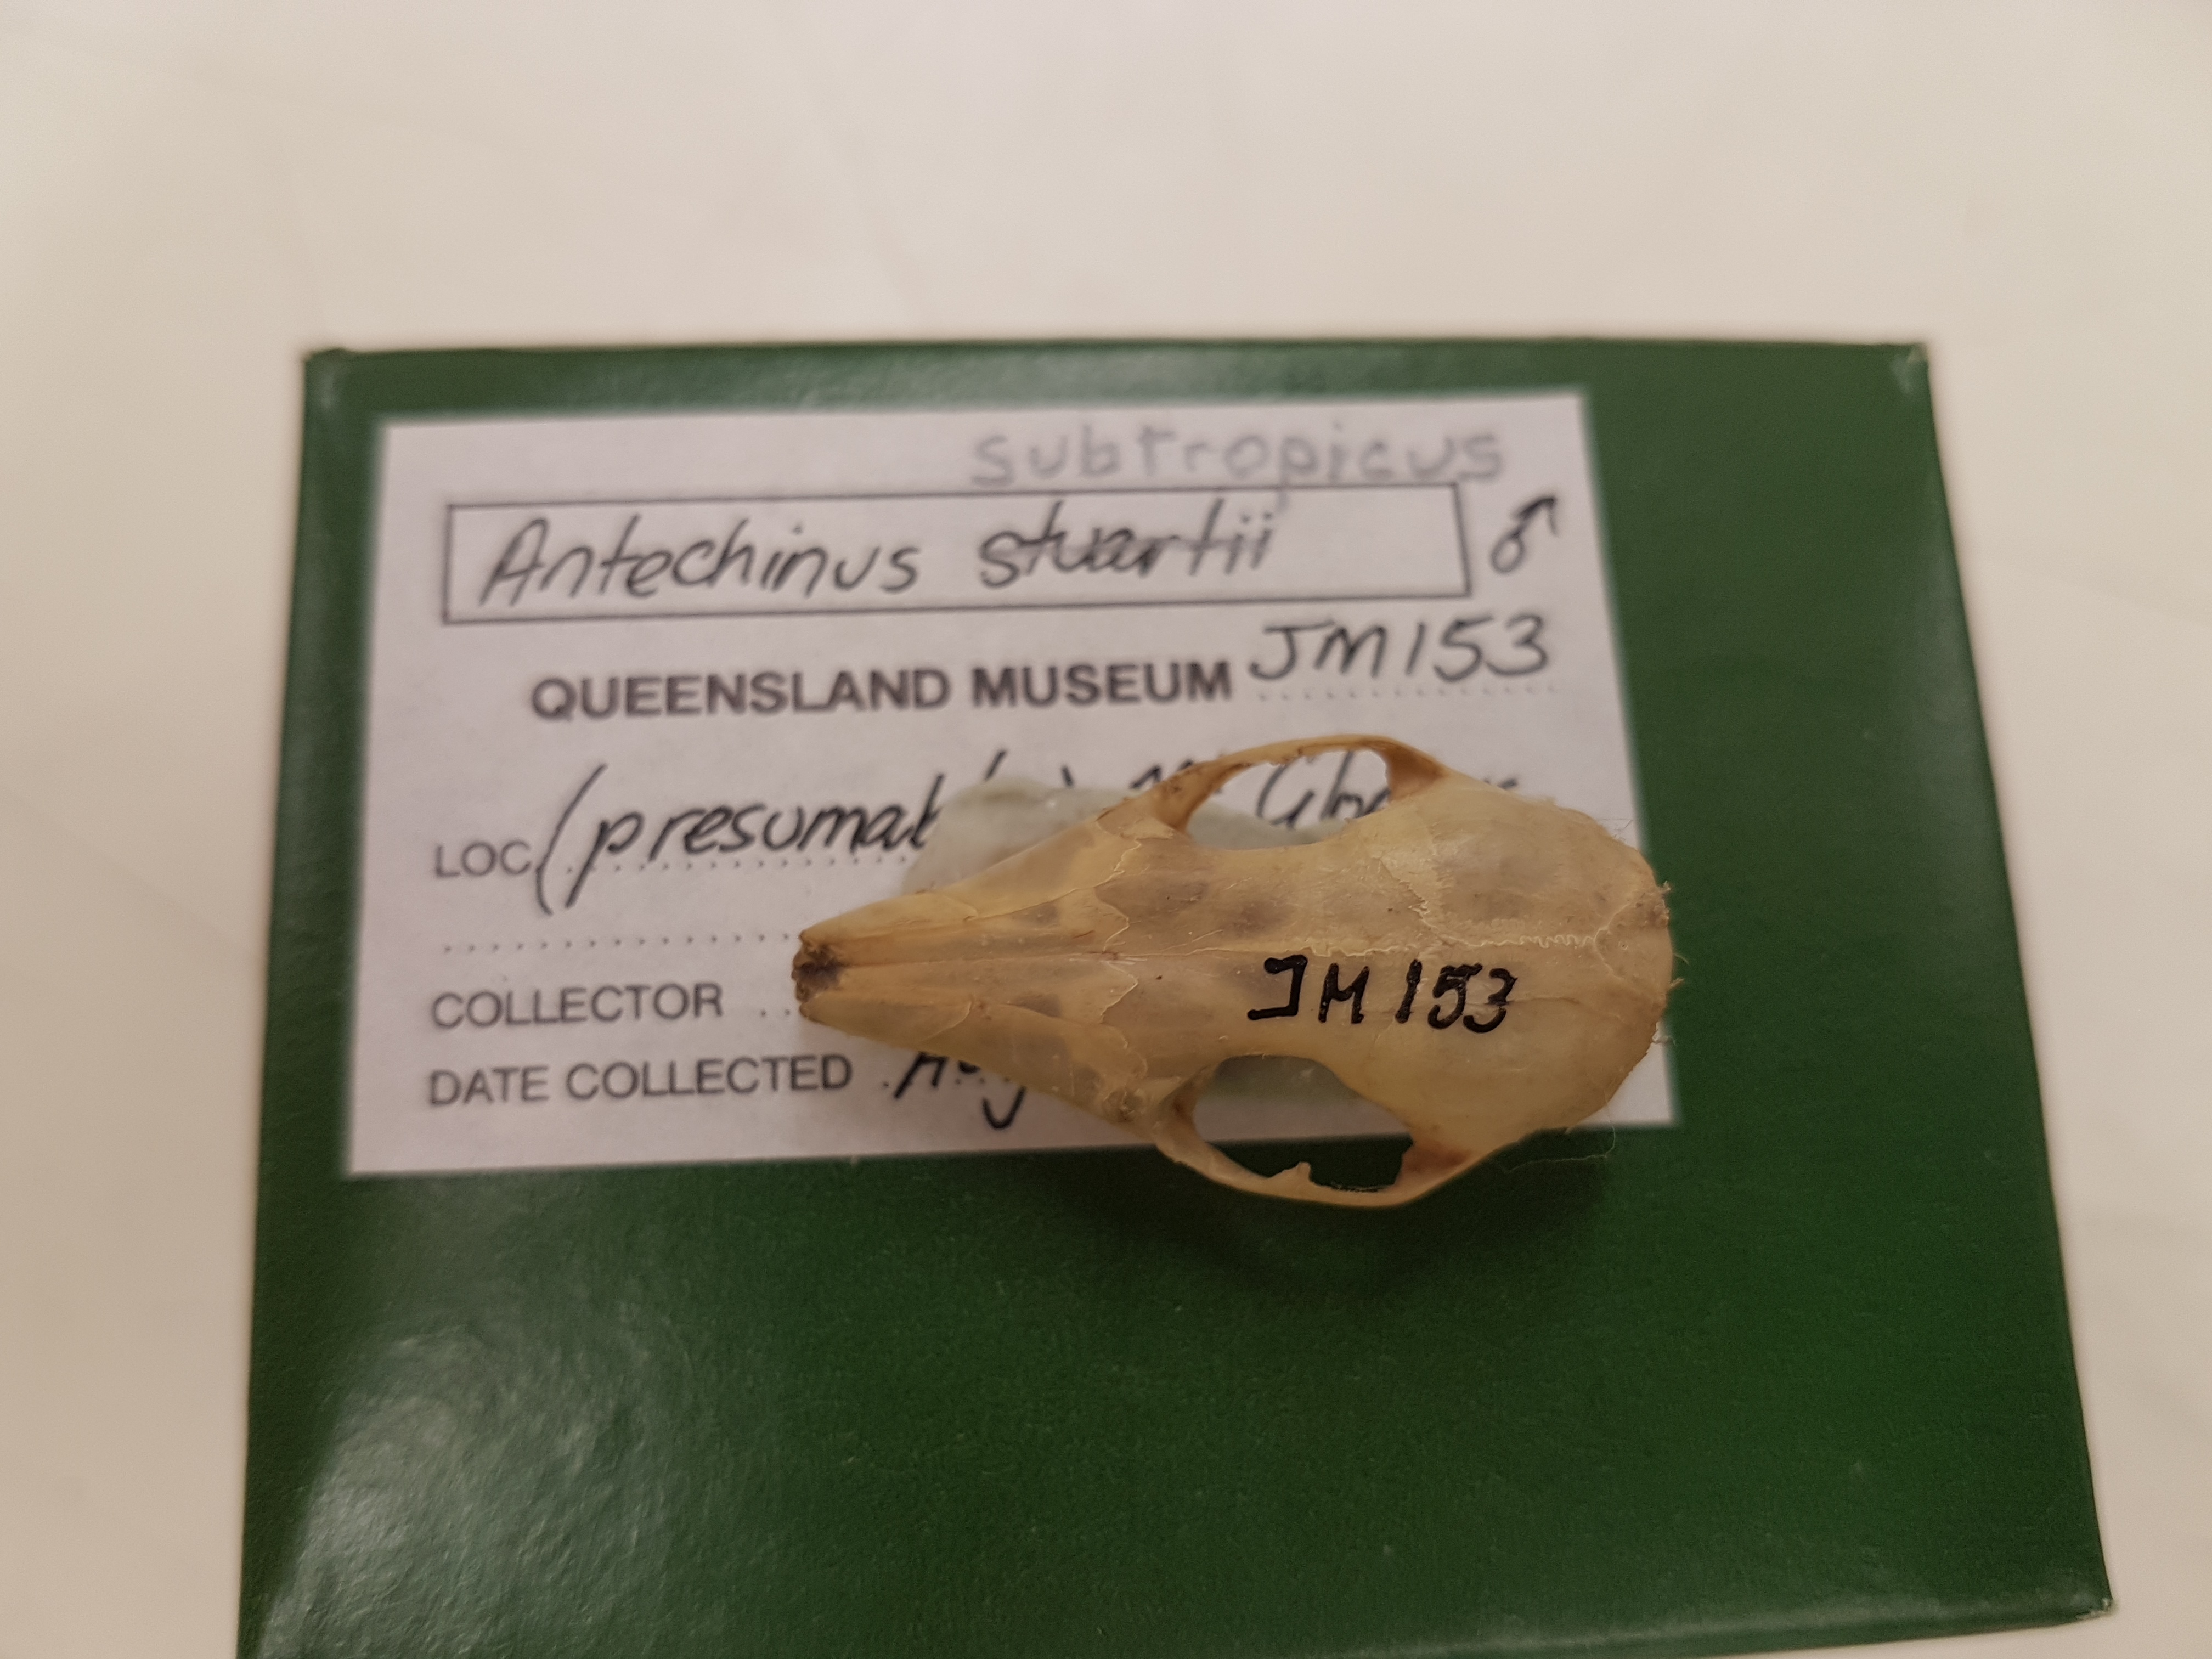 subtropicus
Antechinus stuartii ♂
QUEENSLAND MUSEUM JM153
LOC (presumabl
COLLECTOR
DATE COLLECTED
JM153